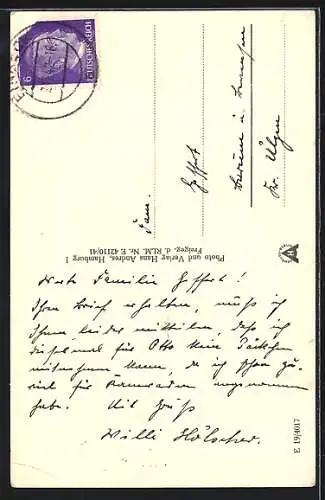 DEUTSCHES REICH
6
Fam.
Effert
Kr. Ülzen
Photo und Verlag Hans Andres, Hamburg 1
Freigeg. d. RLM. Nr. E 42110/41
A
Werte Familie Effert!
Ihren Brief erhalten, muß ich
Ihnen leider mitteilen, daß ich
diesmal für Otto kein Päckchen
mitnehmen kann, da ich schon zu-
viel für Kameraden angenommen
habe. Mit Gruß
Willi Hölscher.
E 19/4017